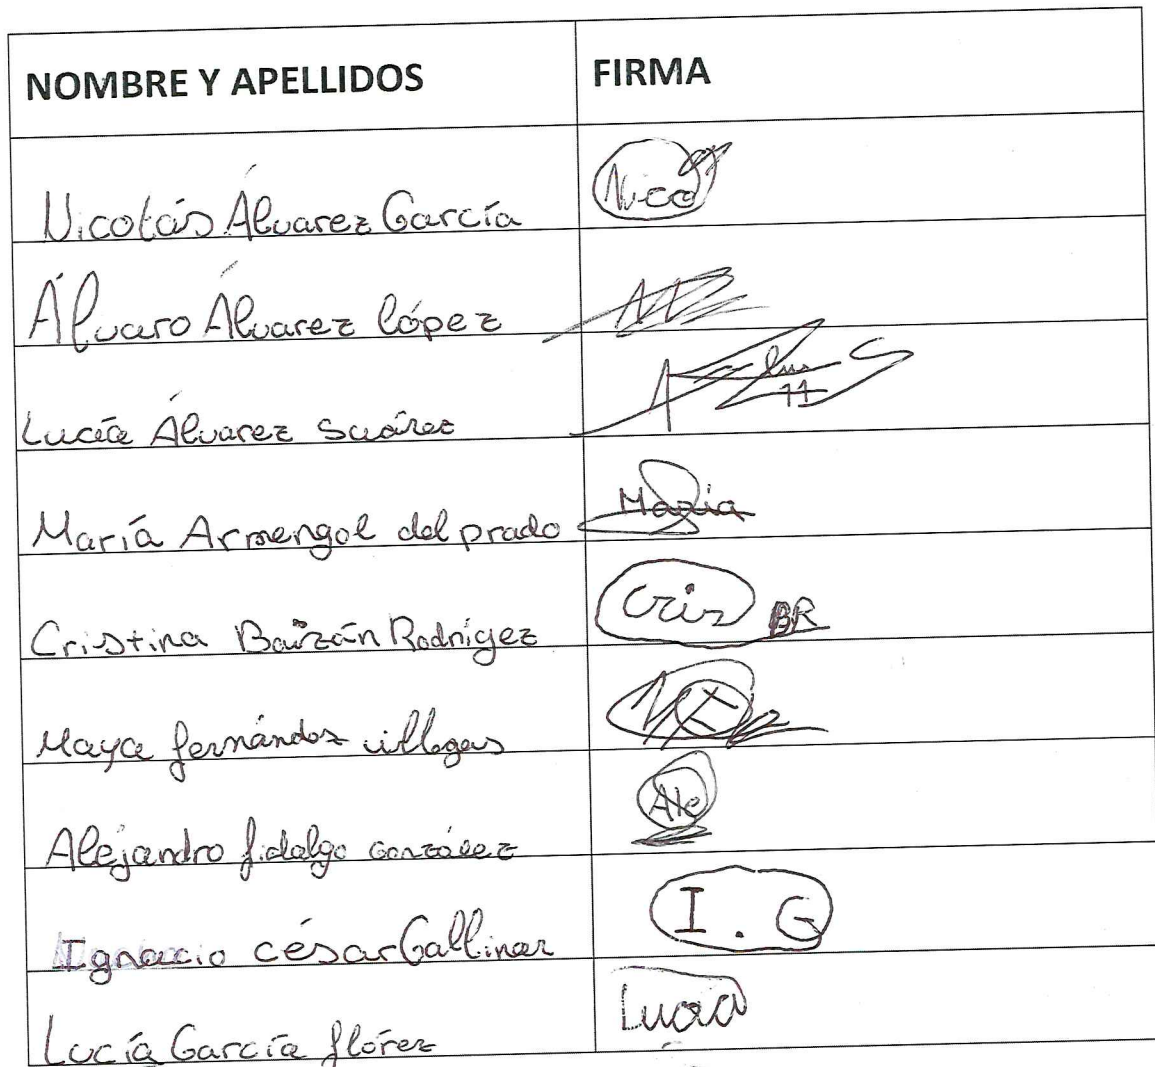 NOMBRE Y APELLIDOS FIRMA
Nicolás Álvarez García Nico
Álvaro Álvarez López
Lucía Álvarez Suárez
María Armengol del prado Maria
Cristina Baizán Rodrígez Cris BR
Maya fernández villegas
Alejandro fidalgo González Ale
Ignacio césar Gallinar I. G
Lucía García flórez Lucía